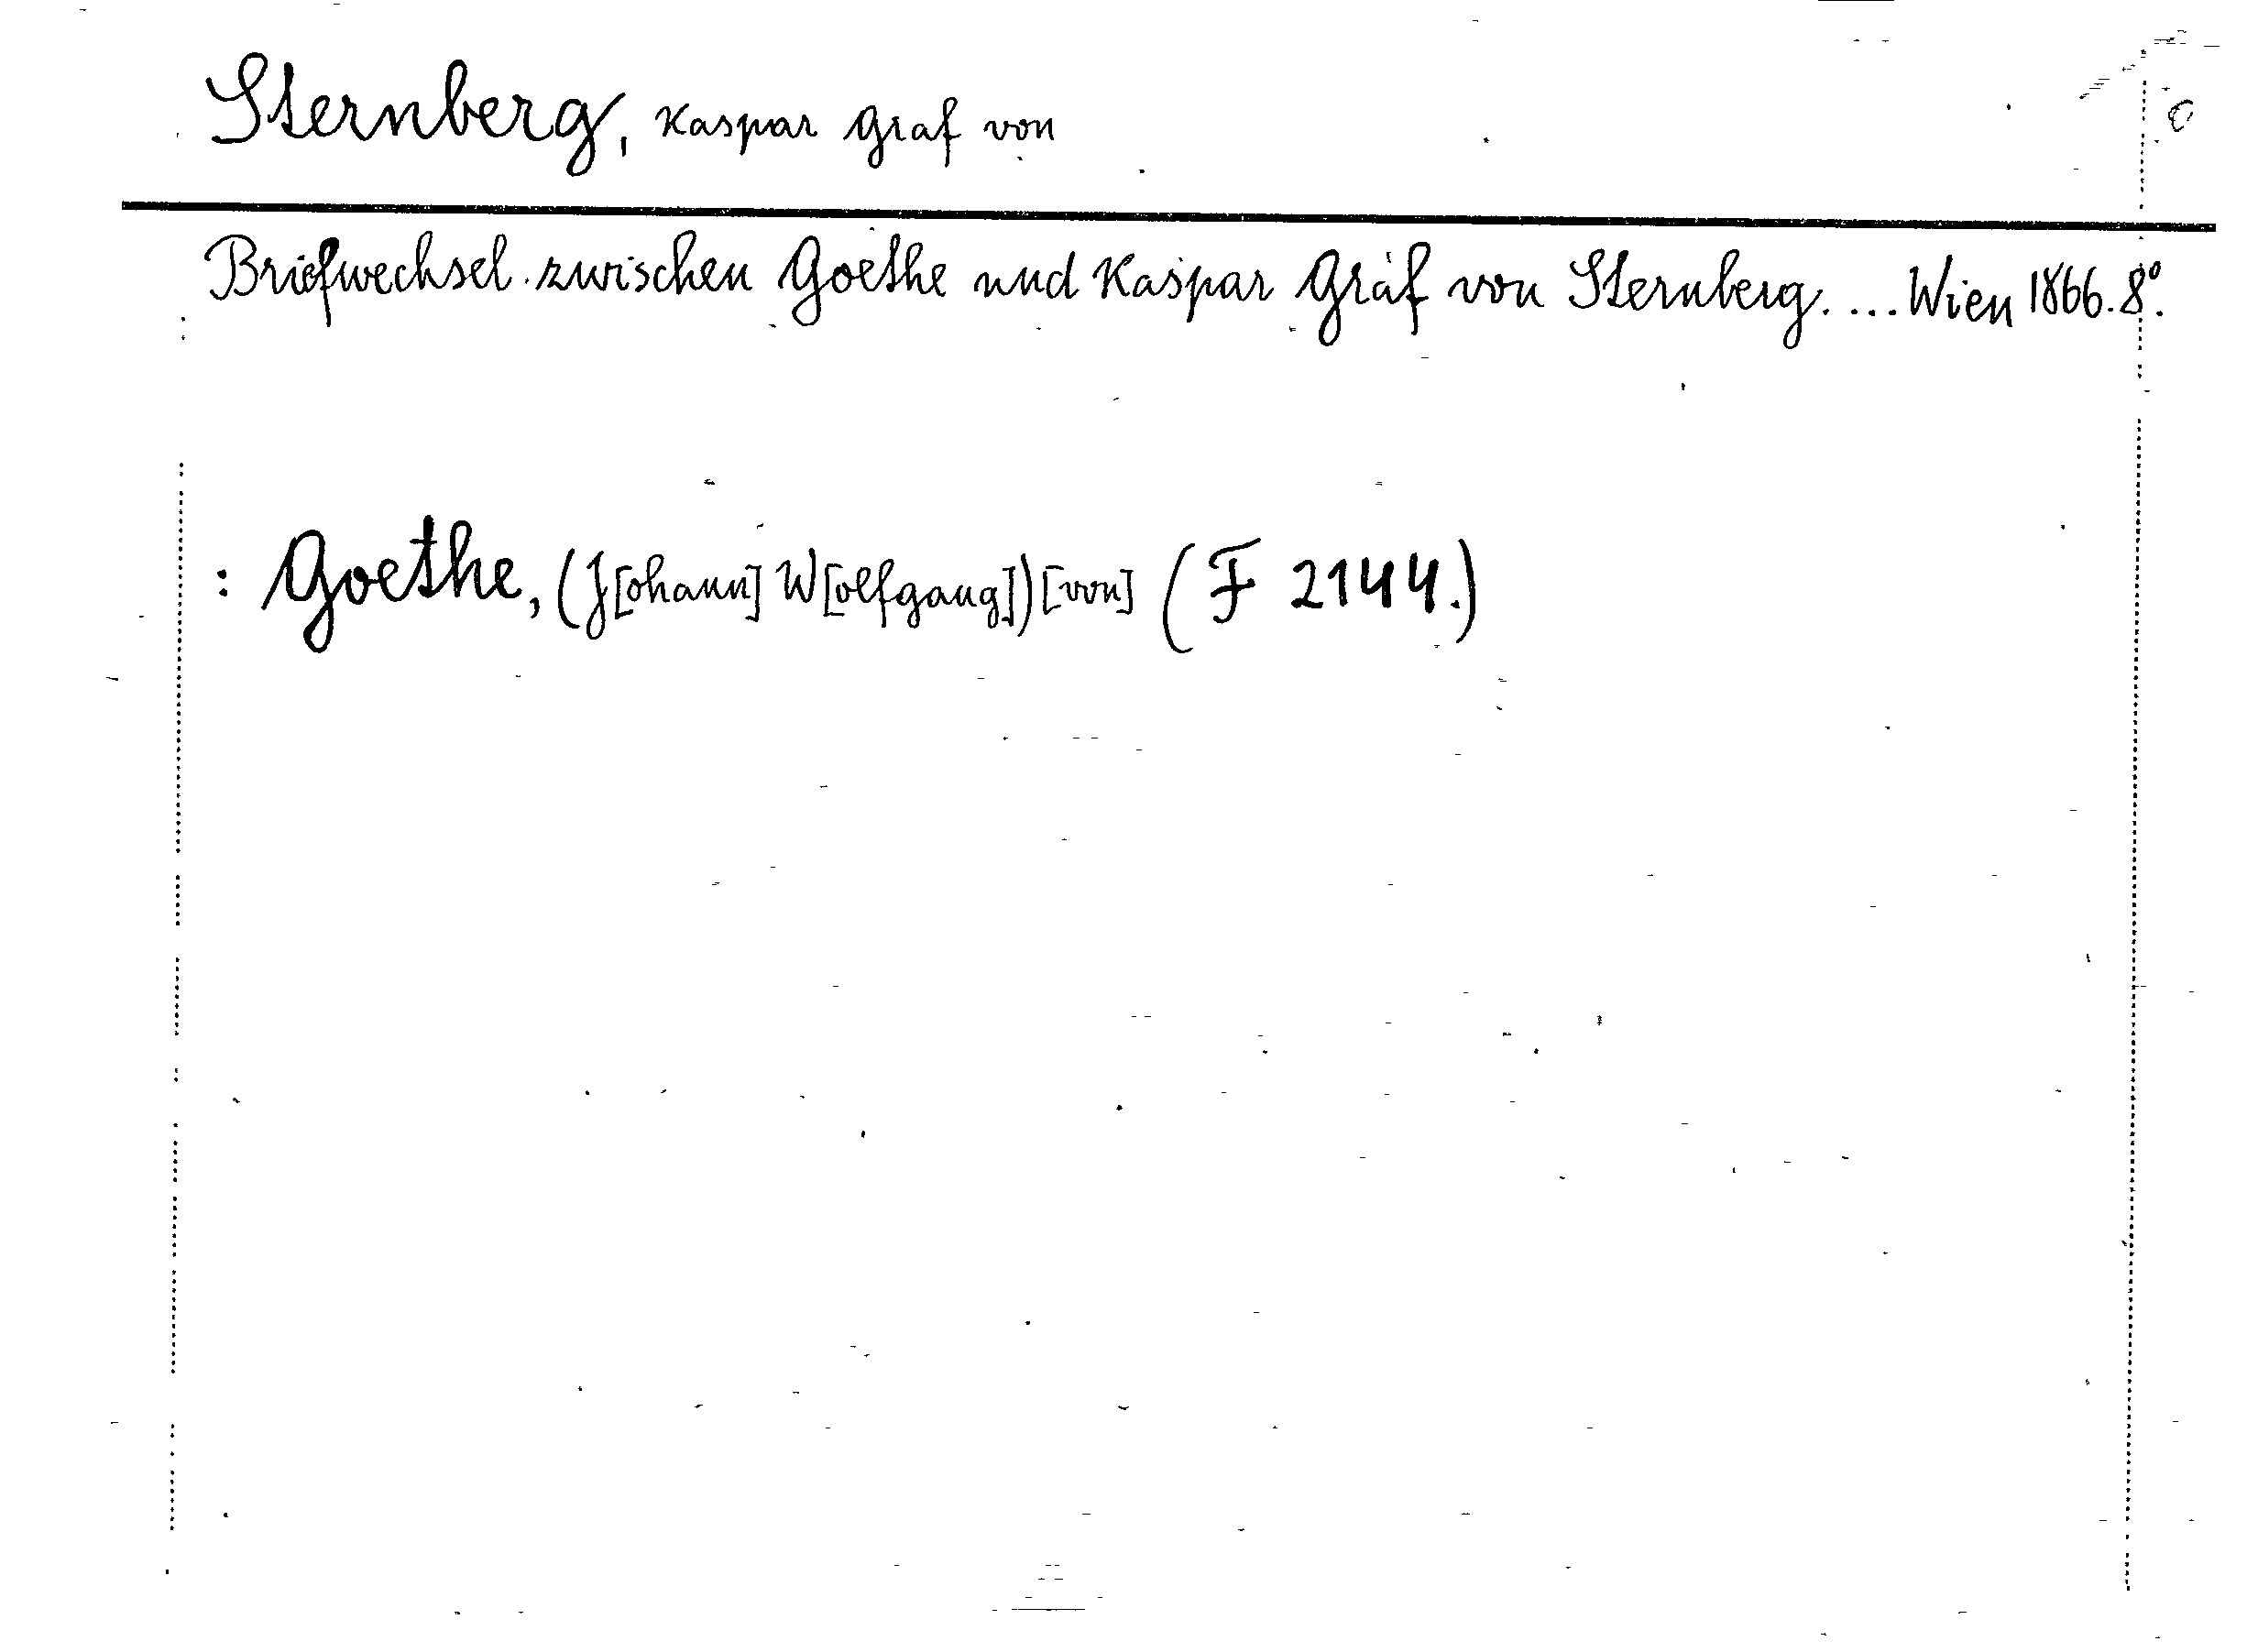 Sternberg, Kaspar Graf von
Briefwechsel zwischen Goethe und Kaspar Graf von Sternberg. ... Wien 1866. 8°.
: Goethe, (J[ohann] W[olfgang]) [von] (F 2144.)